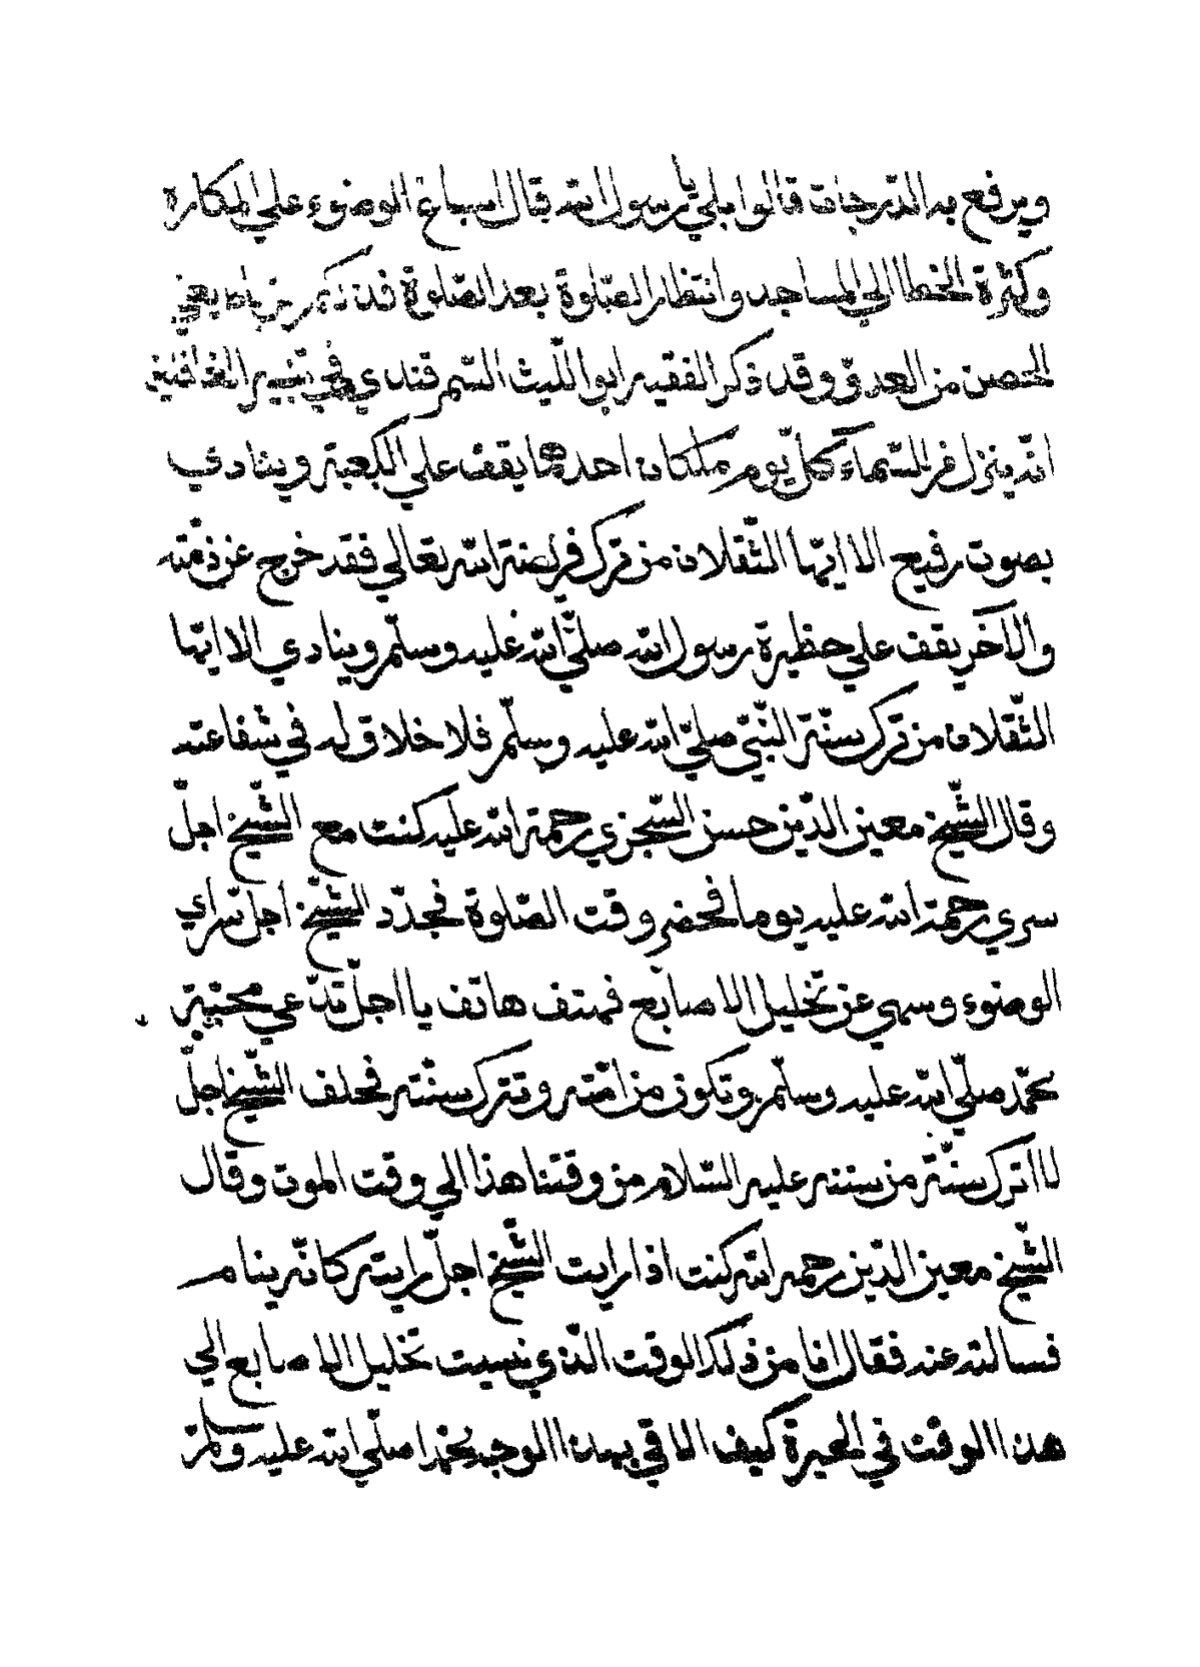 ويرفع به الدرجات قالوا بلي يا رسول الله قال اسباغ الوضوء علي المكاره
وكثرة الخطا الي المساجد وانتظار الصّلوة بعد الصّلوة فذلكم رباط يعني
الحصن من العدوّ وقد ذكر الفقيه ابو اللّيث السّمرقندي في تنبيه الغافلين
انّه ينزل من السّماء كلّ يوم ملكان احدهما يقف علي الكعبة وينادي
بصوت رفيع الا ايّها الثّقلان من ترك فريضة الله تعالي فقد خرج عن ذمّته
والاخر يقف علي حظيرة رسول الله صلّي الله عليه وسلّم وينادي الا ايّها
الثّقلان من ترك سنّة النّبيّ صلّي الله عليه وسلّم فلا خلاق له في شفاعته
وقال الشّيخ معين الدّين حسن السّجزي رحمة الله عليه كنت مع الشّيخ اجلّ
سري رحمة الله عليه يوما فحضر وقت الصّلوة فجدّد الشّيخ اجلّ سراي
الوضوء وسهي عن تخليل الاصابع فهتف هاتف يا اجلّ تدّعي محبّة
محمّد صلّي الله عليه وسلّم وتكون من امّته وتترك سنّته فحلف الشّيخ اجلّ
لا اترك سنّة من سننه عليه السّلام من وقتنا هذا الي وقت الموت وقال
الشّيخ معين الدّين رحمه الله كنت اذا رايت الشّيخ اجلّ رايته كانّه ينام
فسالته عنه فقال انا من ذلك الوقت الذي نسيت تخليل الاصابع الي
هذا الوقت في الحيرة كيف الاقي بهذا الوجه محمّدا صلّي الله عليه وسلّم